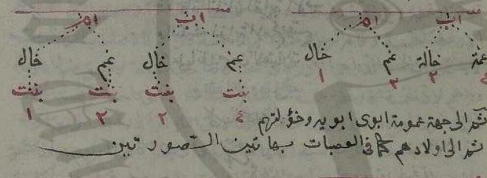 اب ام اب ام
عمة خالة عم خال عم خال عم خال
٤ ٢ ٢ ١ بنت بنت بنت بنت
٤ ٢ ٢ ١
ثم الى جهة عمومة ابوى ابويه وخؤلتهم
ثم الى اولادهم كما فى العصبات بهاتين الصورتين